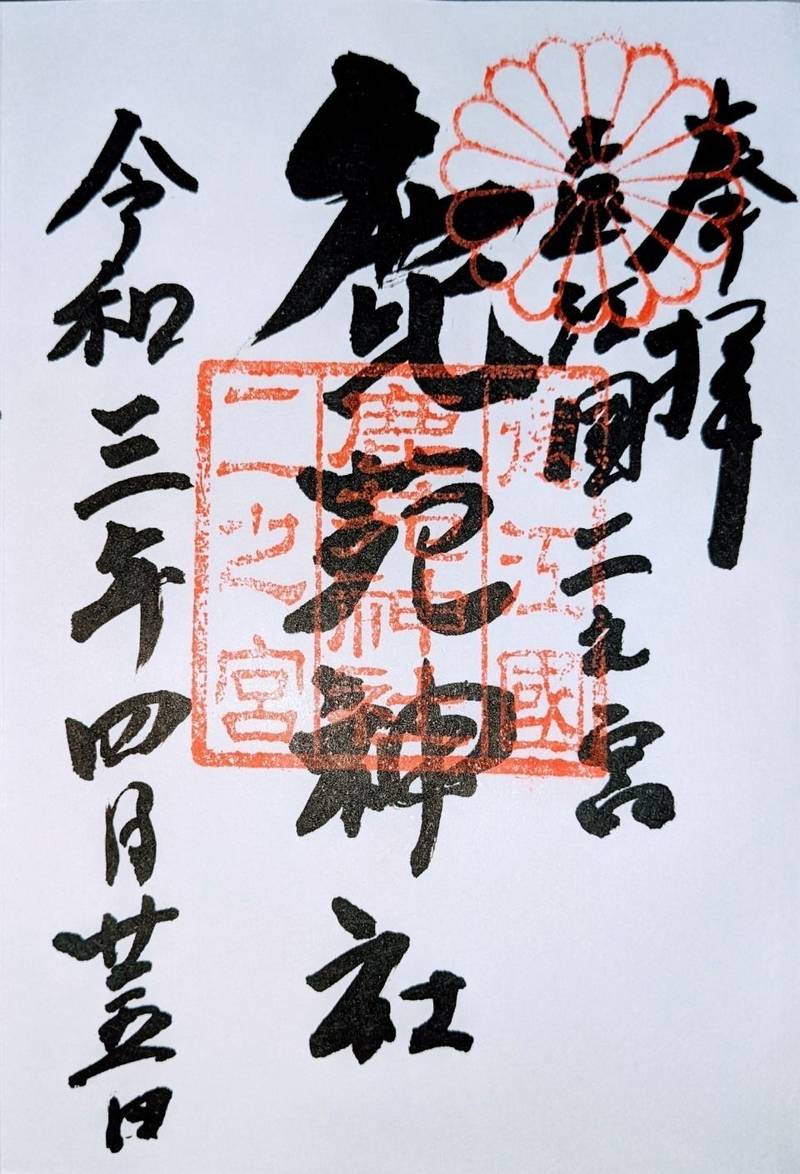 奉拝
遠江國二之宮
鹿苑神社
令和三年四月廿五日
遠江國
鹿苑神社
二之宮